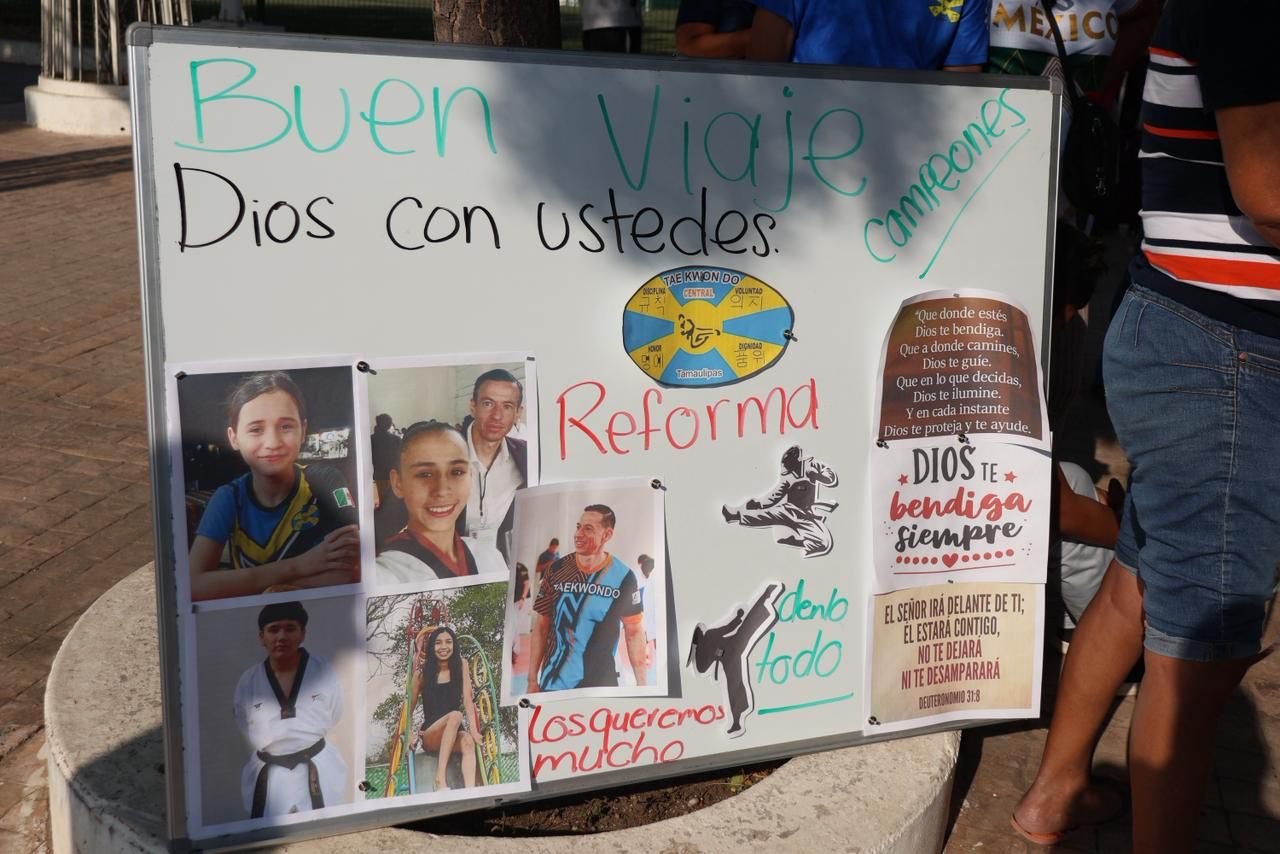 MÉXICO
Buen Viaje
campeones
Dios con ustedes.
TAE KWON DO
CENTRAL
DISCIPLINA
VOLUNTAD
규칙
의지
HONOR
DIGNIDAD
명예
품위
Tamaulipas
Reforma
TAEKWONDO
denlo
todo
Los queremos
mucho
"Que donde estés
Dios te bendiga.
Que a donde camines,
Dios te guíe.
Que en lo que decidas,
Dios te ilumine.
Y en cada instante
Dios te proteja y te ayude.
DIOS TE
bendiga
siempre
EL SEÑOR IRÁ DELANTE DE TI;
ÉL ESTARÁ CONTIGO,
NO TE DEJARÁ
NI TE DESAMPARARÁ
DEUTERONOMIO 31:8